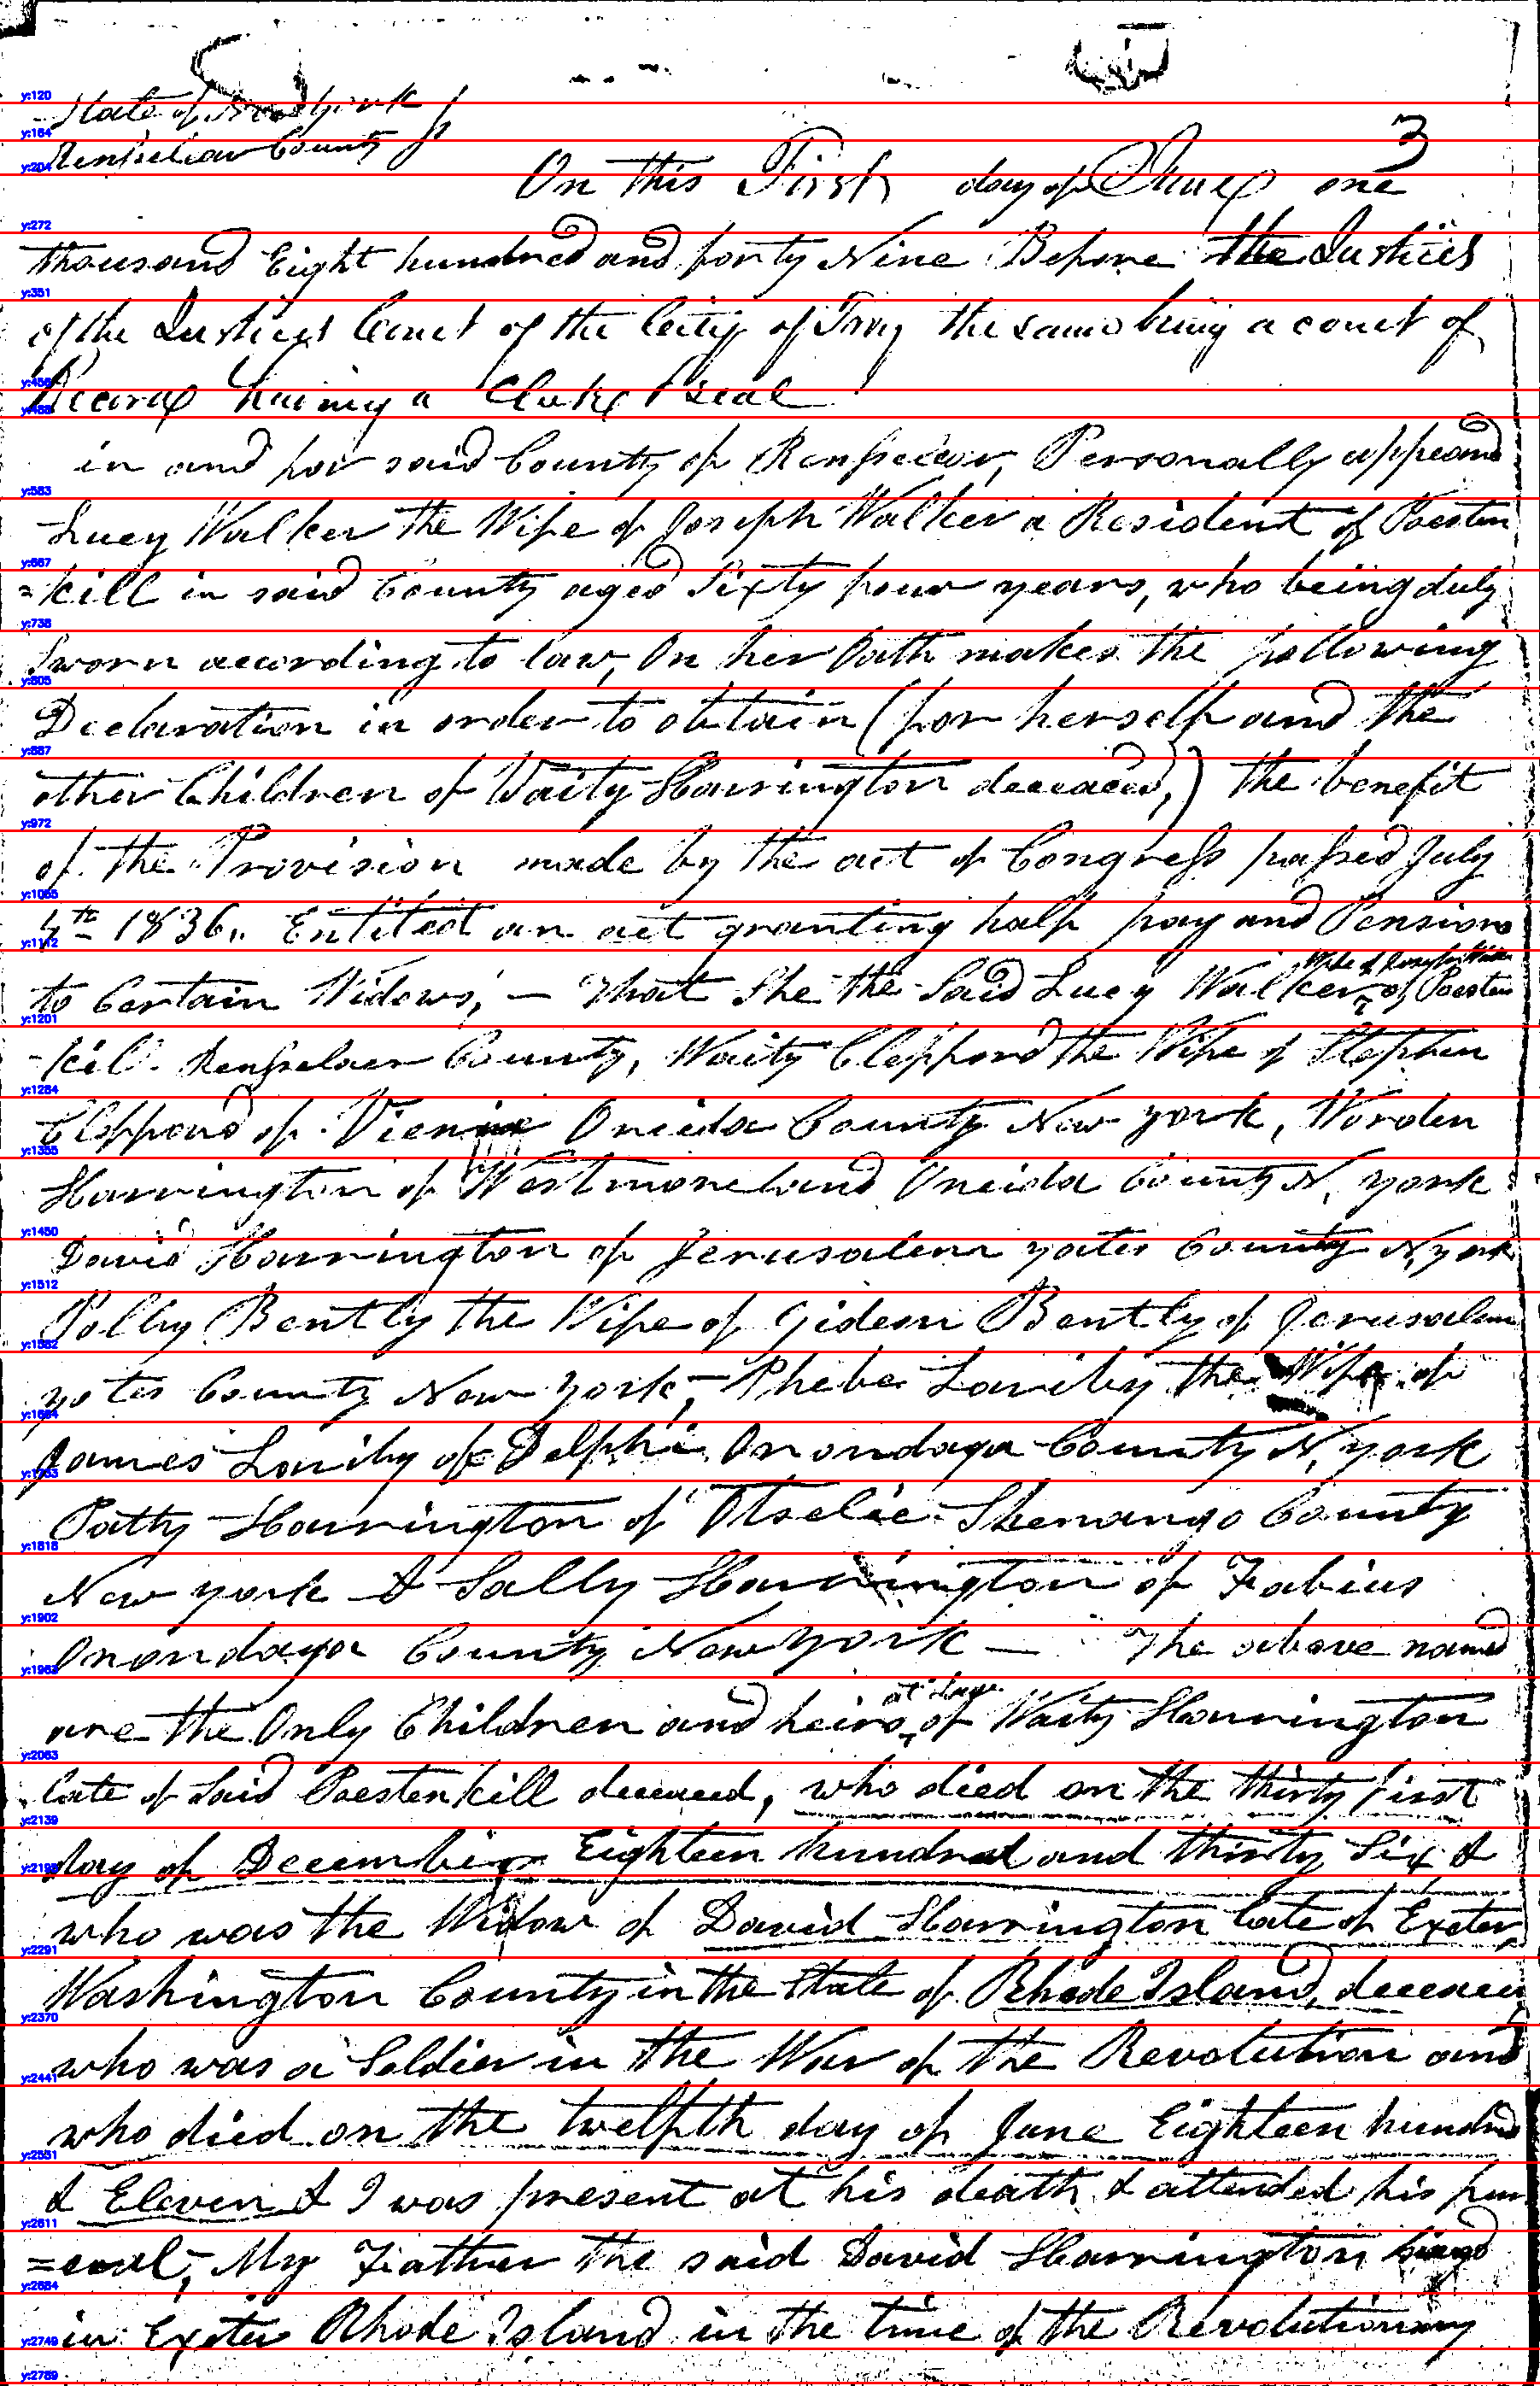 State of New York
Rensselaer County
3
On this First day of June one
thousand Eight hundred and forty Nine Before the Justices
of the Justices Court of the City of Troy the same being a court of
Record having a Clerk & seal
in and for said County of Rensselaer, Personally appeared
Lucy Walker the Wife of Joseph Walker a Resident of Poesten
=kill in said County aged Sixty four years, who being duly
Sworn according to law, On her Oath makes the following
Declaration in order to obtain (for herself and the
other Children of Waity Harrington deceased,) the benefit
of the Provision made by the act of Congress passed July
4th 1836.. Entitled an act granting half pay and Pensions
to Certain Widows, — That She the Said Lucy Walker, of Poesten
Wife of Joseph Walker
-kill Rensselaer County, Waity Clepford the Wife of Stephen
Clepford of Vienna Oneida County New York, Worden
Harrington of Westmoreland Oneida County N, York
David Harrington of Jerusalem yates County N, York
Polly Bently the Wife of Gideon Bently of Jerusalem
yates County New York, Phebe the Wife of
James of Delphi Onondaga County N, York
Patty Harrington of Otselic Shenango County
New York & Sally Harrington of Fabius
Onondaga County New York — The above named
are the Only Children and heirs at law of Waity Harrington
late of Said Poestenkill deceased, who died on the thirty first
day of December Eighteen hundred and thirty Six &
who was the Widow of David Harrington late of Exeter,
Washington County in the State of Rhode Island, deceased
who was a Soldier in the War of the Revolution and
who died on the twelfth day of June Eighteen hundred
& Eleven & I was present at his death & attended his fun
=eral, My Father the said David Harrington lived
in Exeter Rhode Island in the time of the Revolutionary